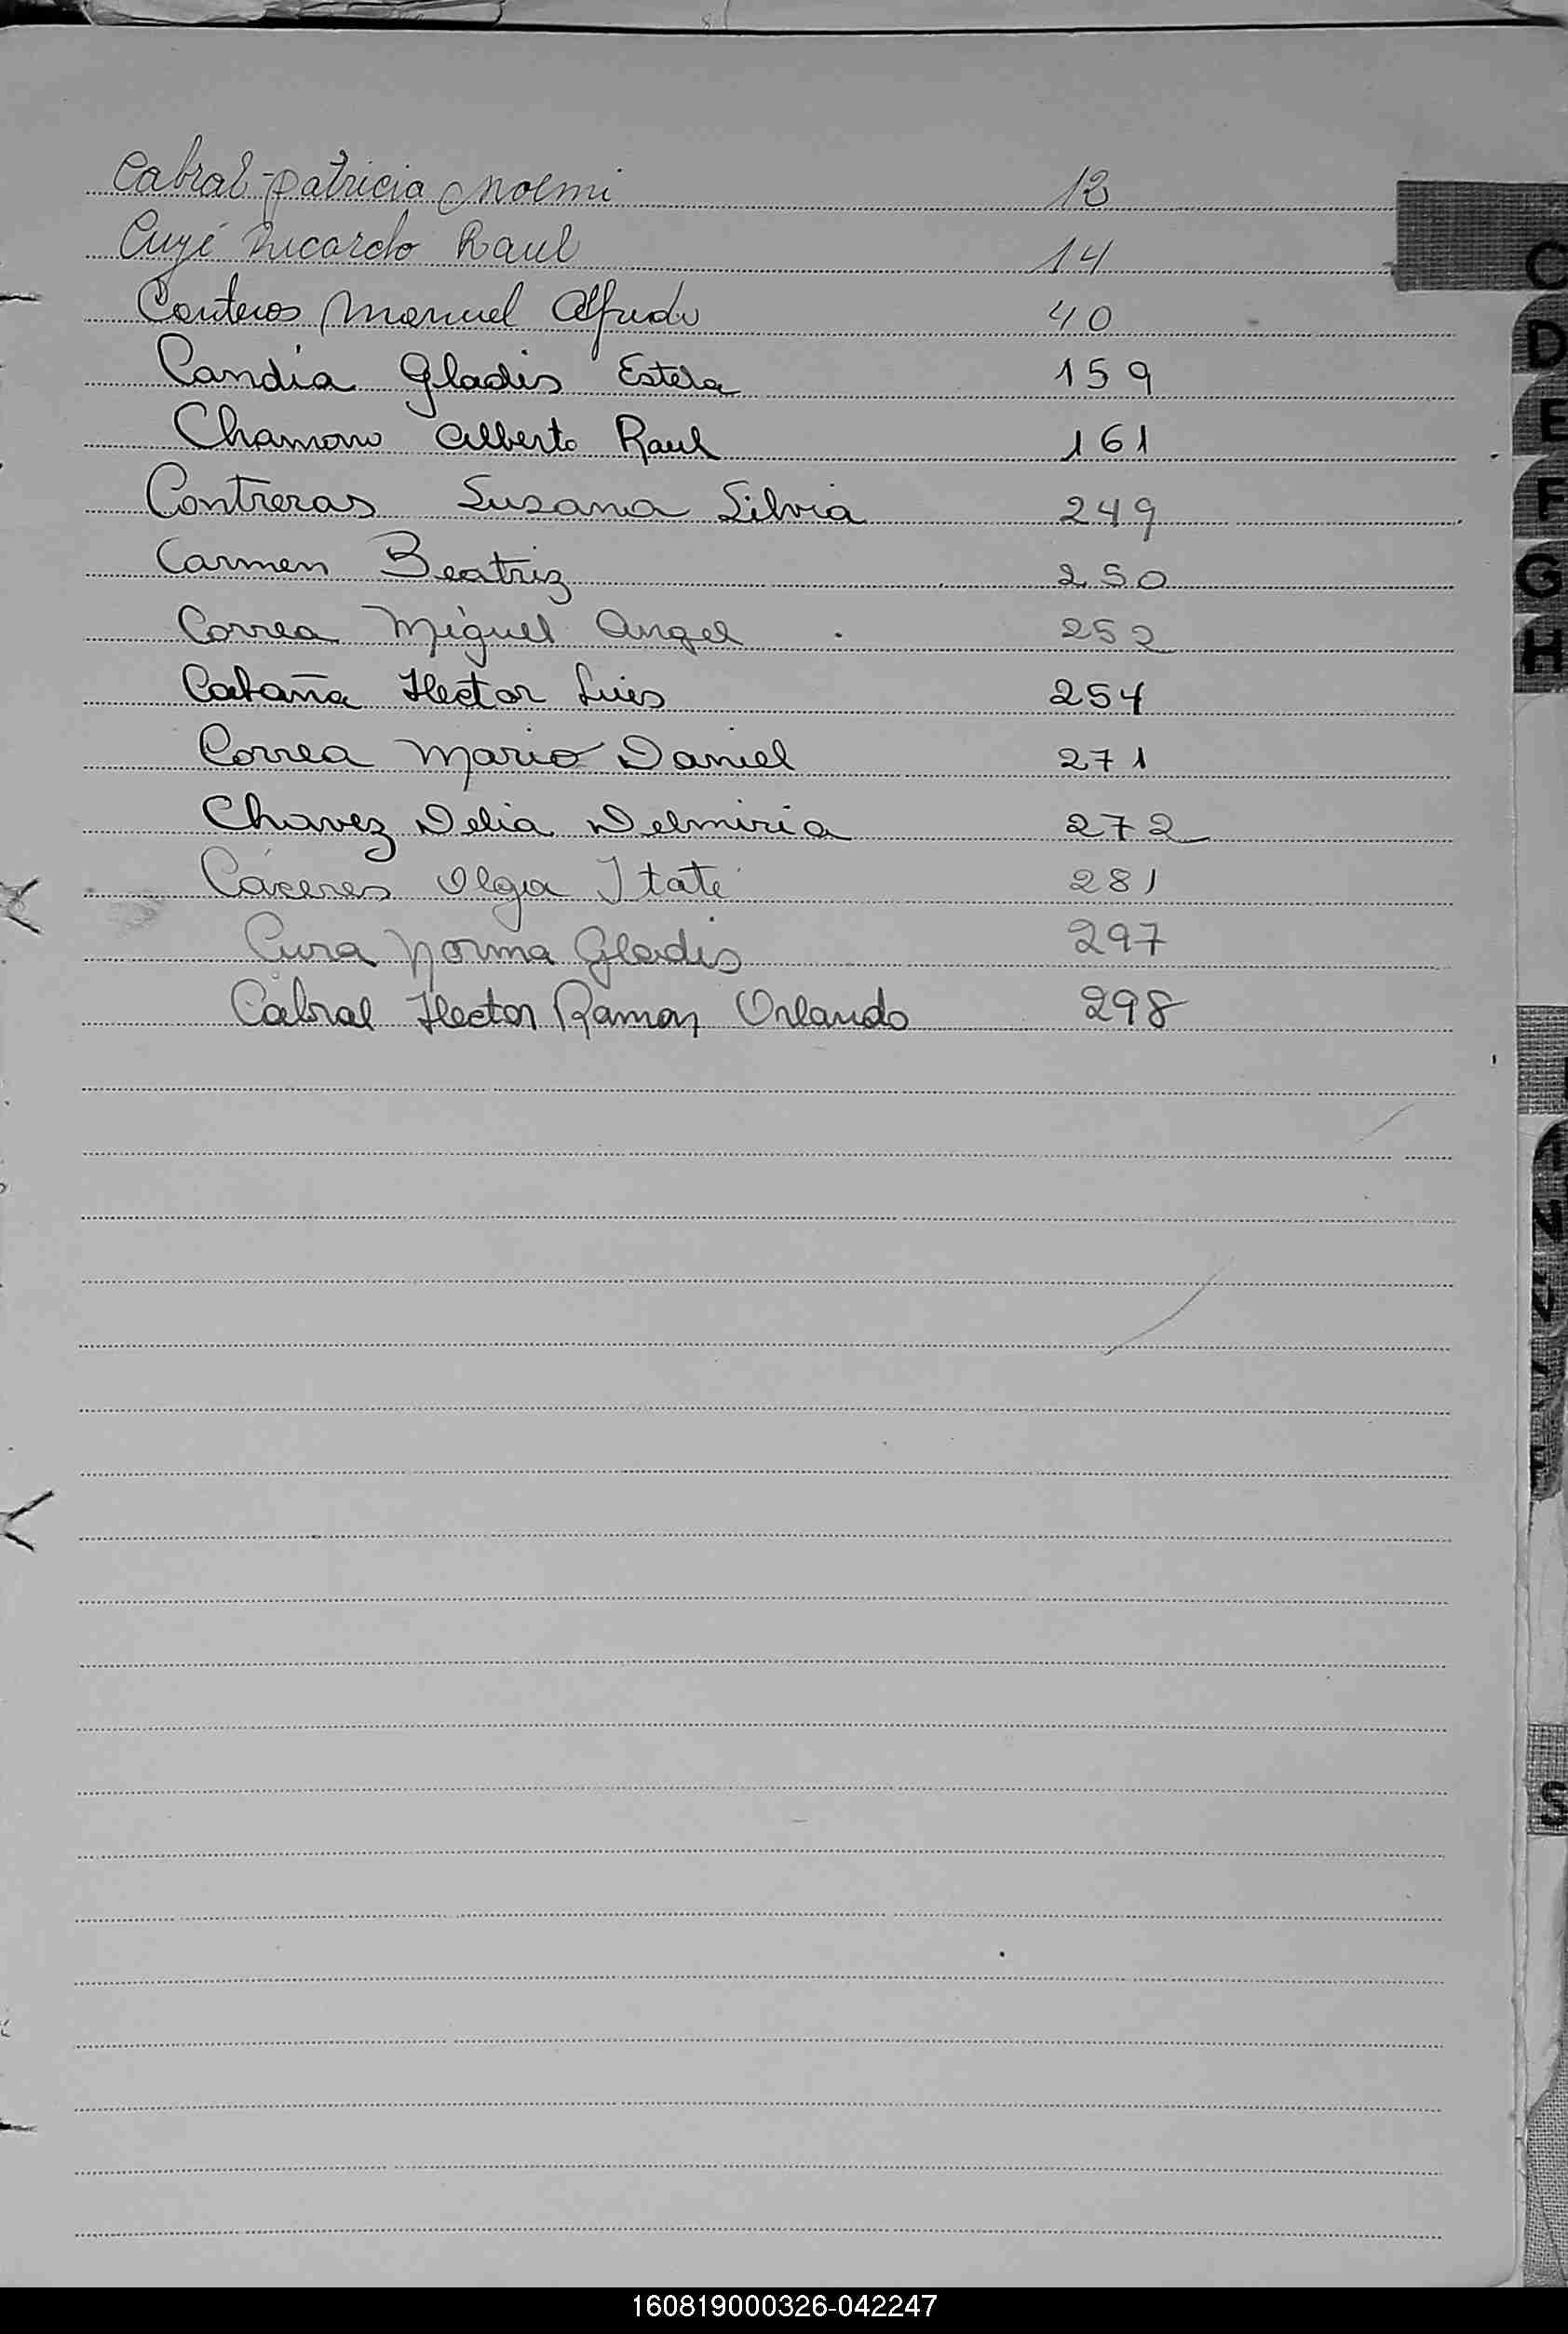 Cabral Patricia Noemi 12
Cuyé Ricardo Raul 14
Conteros Manuel Alfredo 40
Candia Gladis Estela 159
Chamorro Alberto Raul 161
Contreras Susana Silvia 249
Carmen Beatriz 250
Correa Miguel Angel 252
Cataña Hector Luis 254
Correa Mario Daniel 271
Chavez Delia Delmiria 272
Cáceres Olga Itatí 281
Cura Norma Gladis 297
Cabral Hector Ramon Orlando 298
C
D
E
F
G
H
S
160819000326-042247